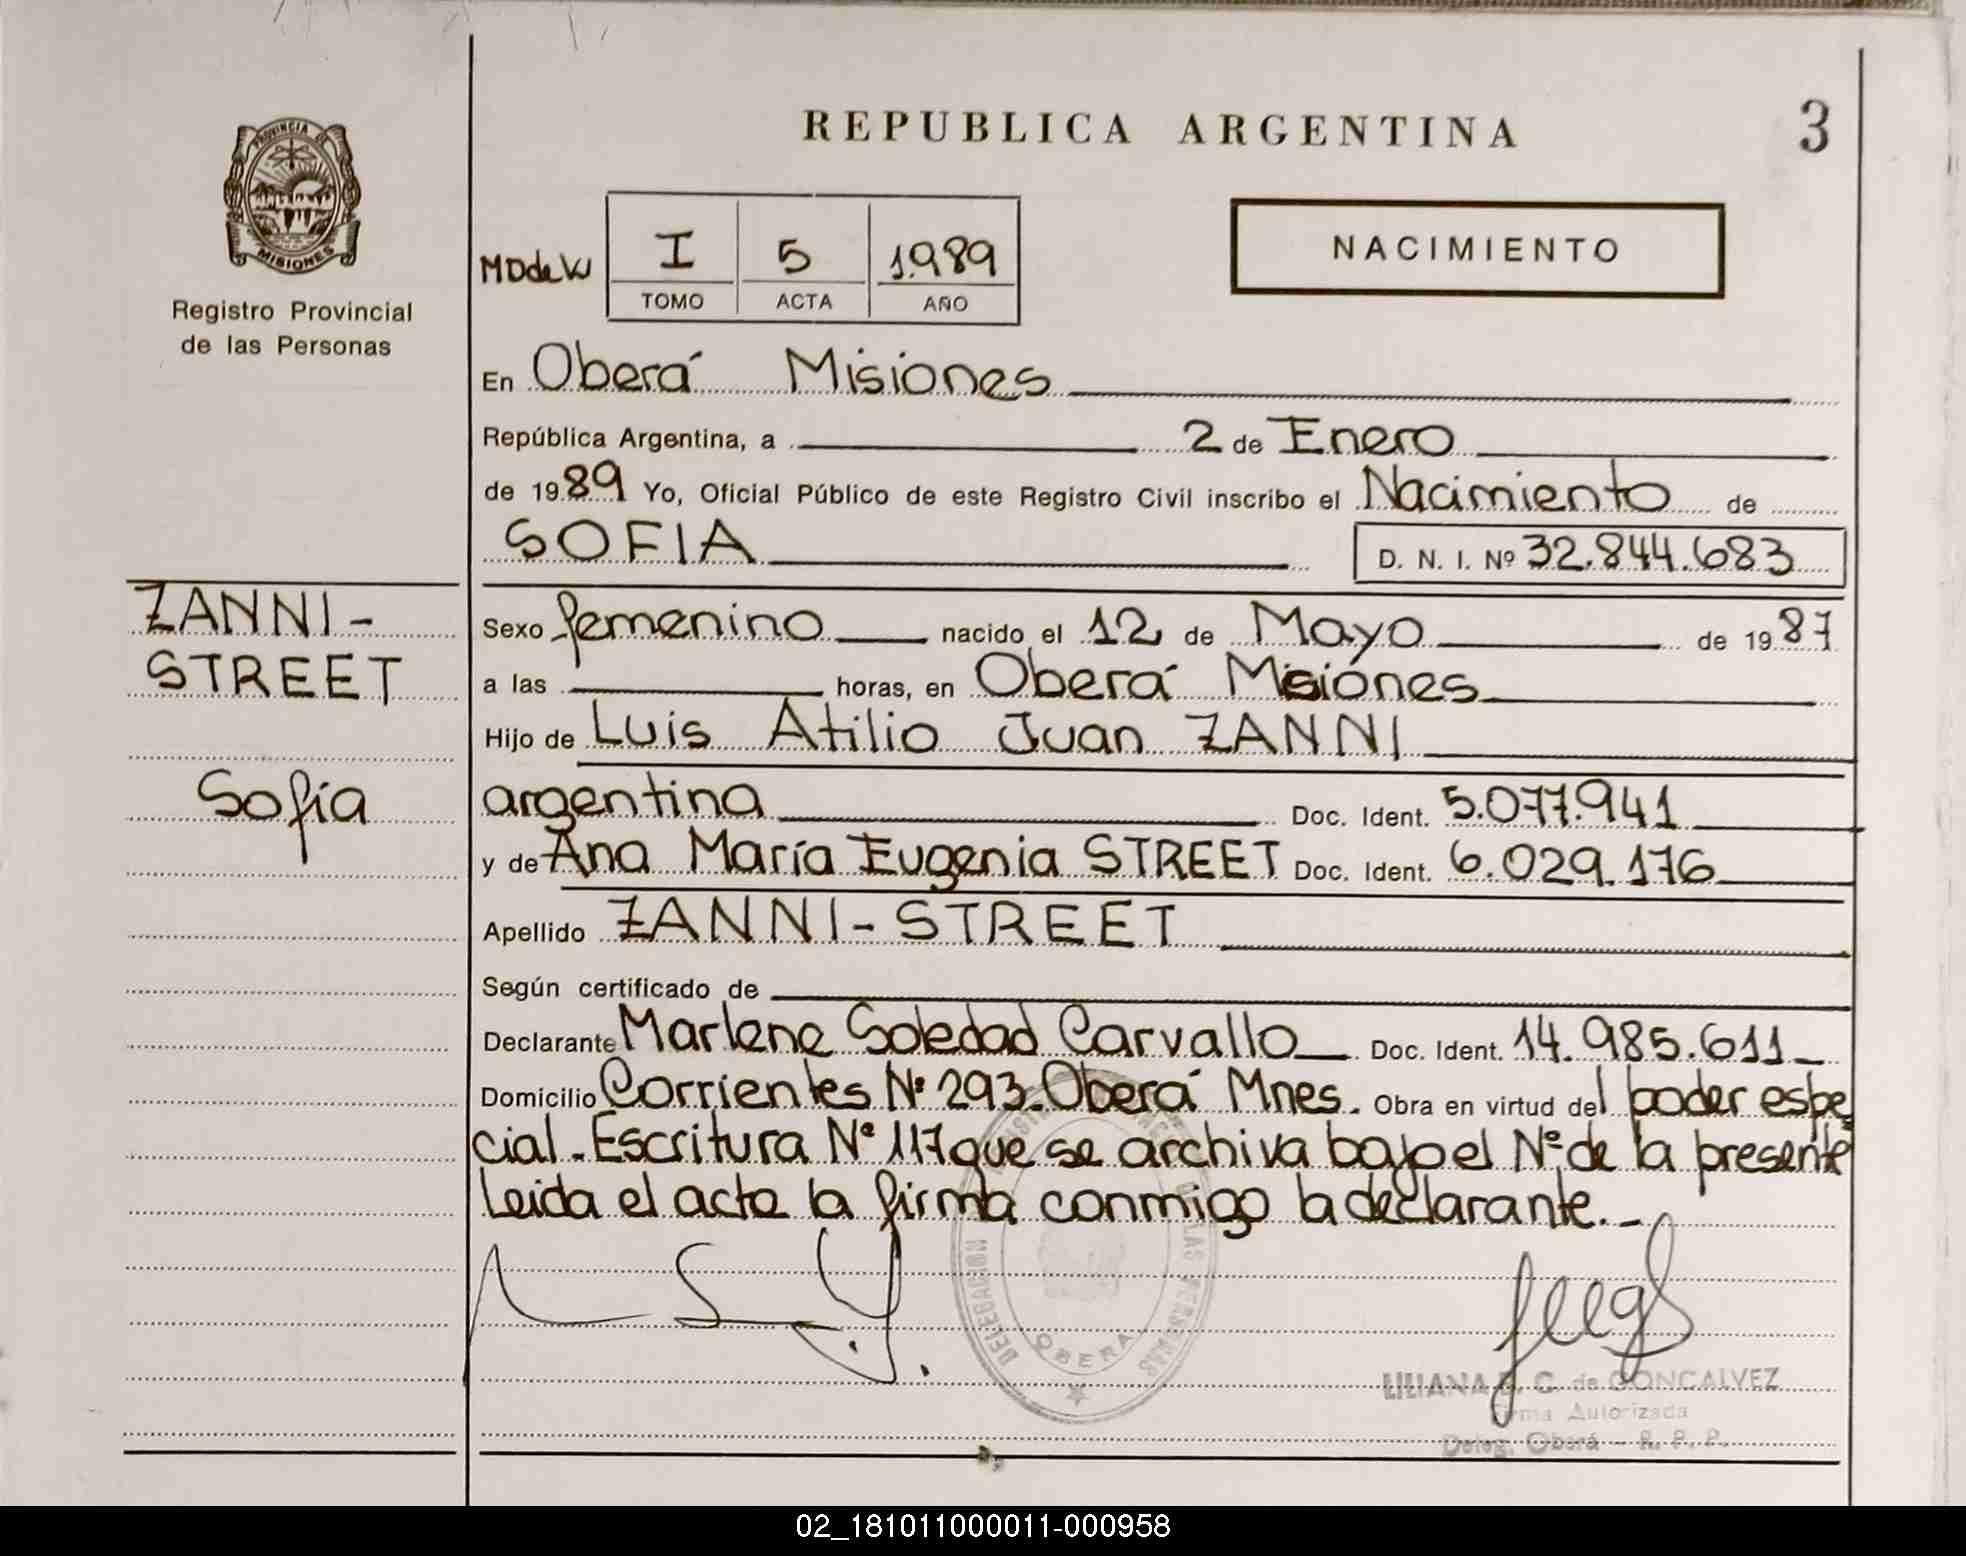 REPUBLICA ARGENTINA
3
PROVINCIA DE
MISIONES
Registro Provincial
de las Personas
I 5 1.989
TOMO ACTA AÑO
NACIMIENTO
En Oberá Misiones
República Argentina, a 2 de Enero
de 1989 Yo, Oficial Público de este Registro Civil inscribo el Nacimiento de
SOFIA D. N. I. Nº 32.844.683
ZANNI-
STREET
Sofía
Sexo femenino nacido el 12 de Mayo de 1987
a las horas, en Oberá Misiones
Hijo de Luis Atilio Juan ZANNI
argentina Doc. Ident. 5.077.941
y de Ana María Eugenia STREET Doc. Ident. 6.029.176
Apellido ZANNI-STREET
Según certificado de
Declarante Marlene Soledad Carvallo Doc. Ident. 14.985.611
Domicilio Corrientes Nº 293. Oberá Mnes. Obra en virtud del poder espe
cial. Escritura Nº 117 que se archiva bajo el Nº de la presente
Leida el acta la firma conmigo la declarante.
DELEGACION
LAS PERSONAS
OBERA
LILIANA C. de GONCALVEZ
Firma Autorizada
Deleg. Oberá - R. P. P.
02_181011000011-000958